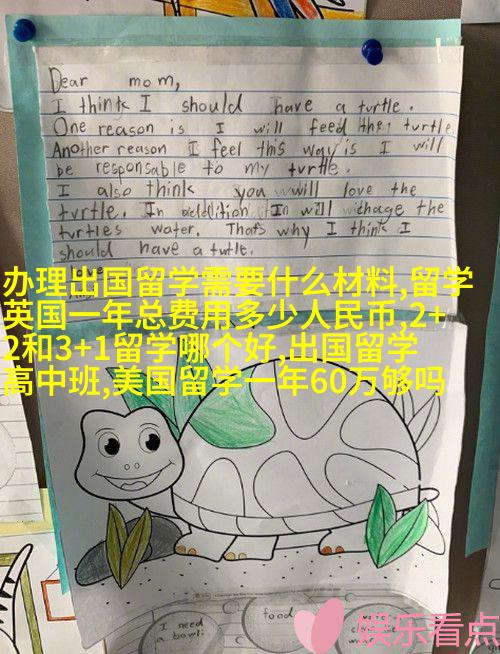 Dear mom,
I think I should have a turtle.
One reason is I will feed the turtle
Another reason I feel this way is I will
be responsable to my turtle.
I also think you will love the
turtle. In addition I will chage the
turtles water. Thats why I think I
should have a turtle.
办理出国留学需要什么材料,留学
英国一年总费用多少人民币,2+
2和3+1留学哪个好,出国留学
高中班,美国留学一年60万够吗
I need
a bowl
food
娱乐看点